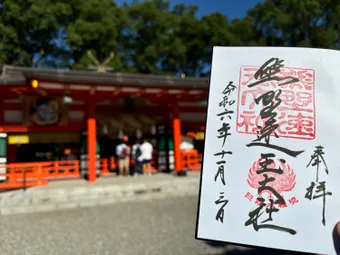 奉拝
熊野速玉大社
令和六年十一月三日